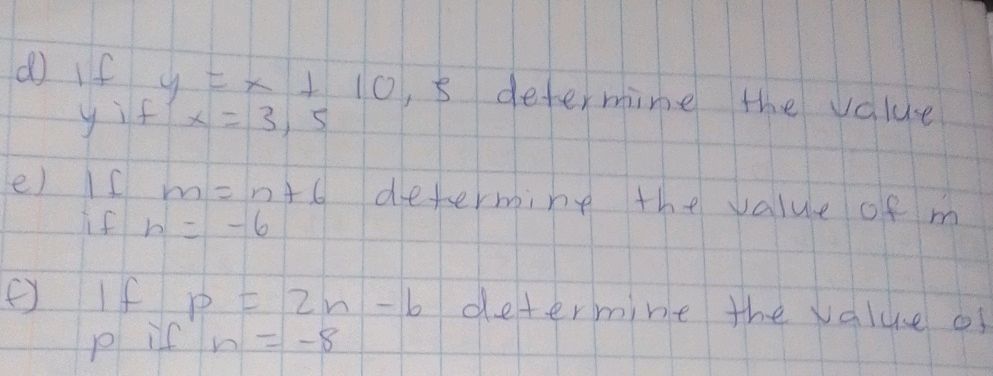 d) If y = x + 10,5 determine the value
y if x = 3,5
e) If m = n + 6 determine the value of m
if n = -6
f) If p = 2n - 6 determine the value of
p if n = -8